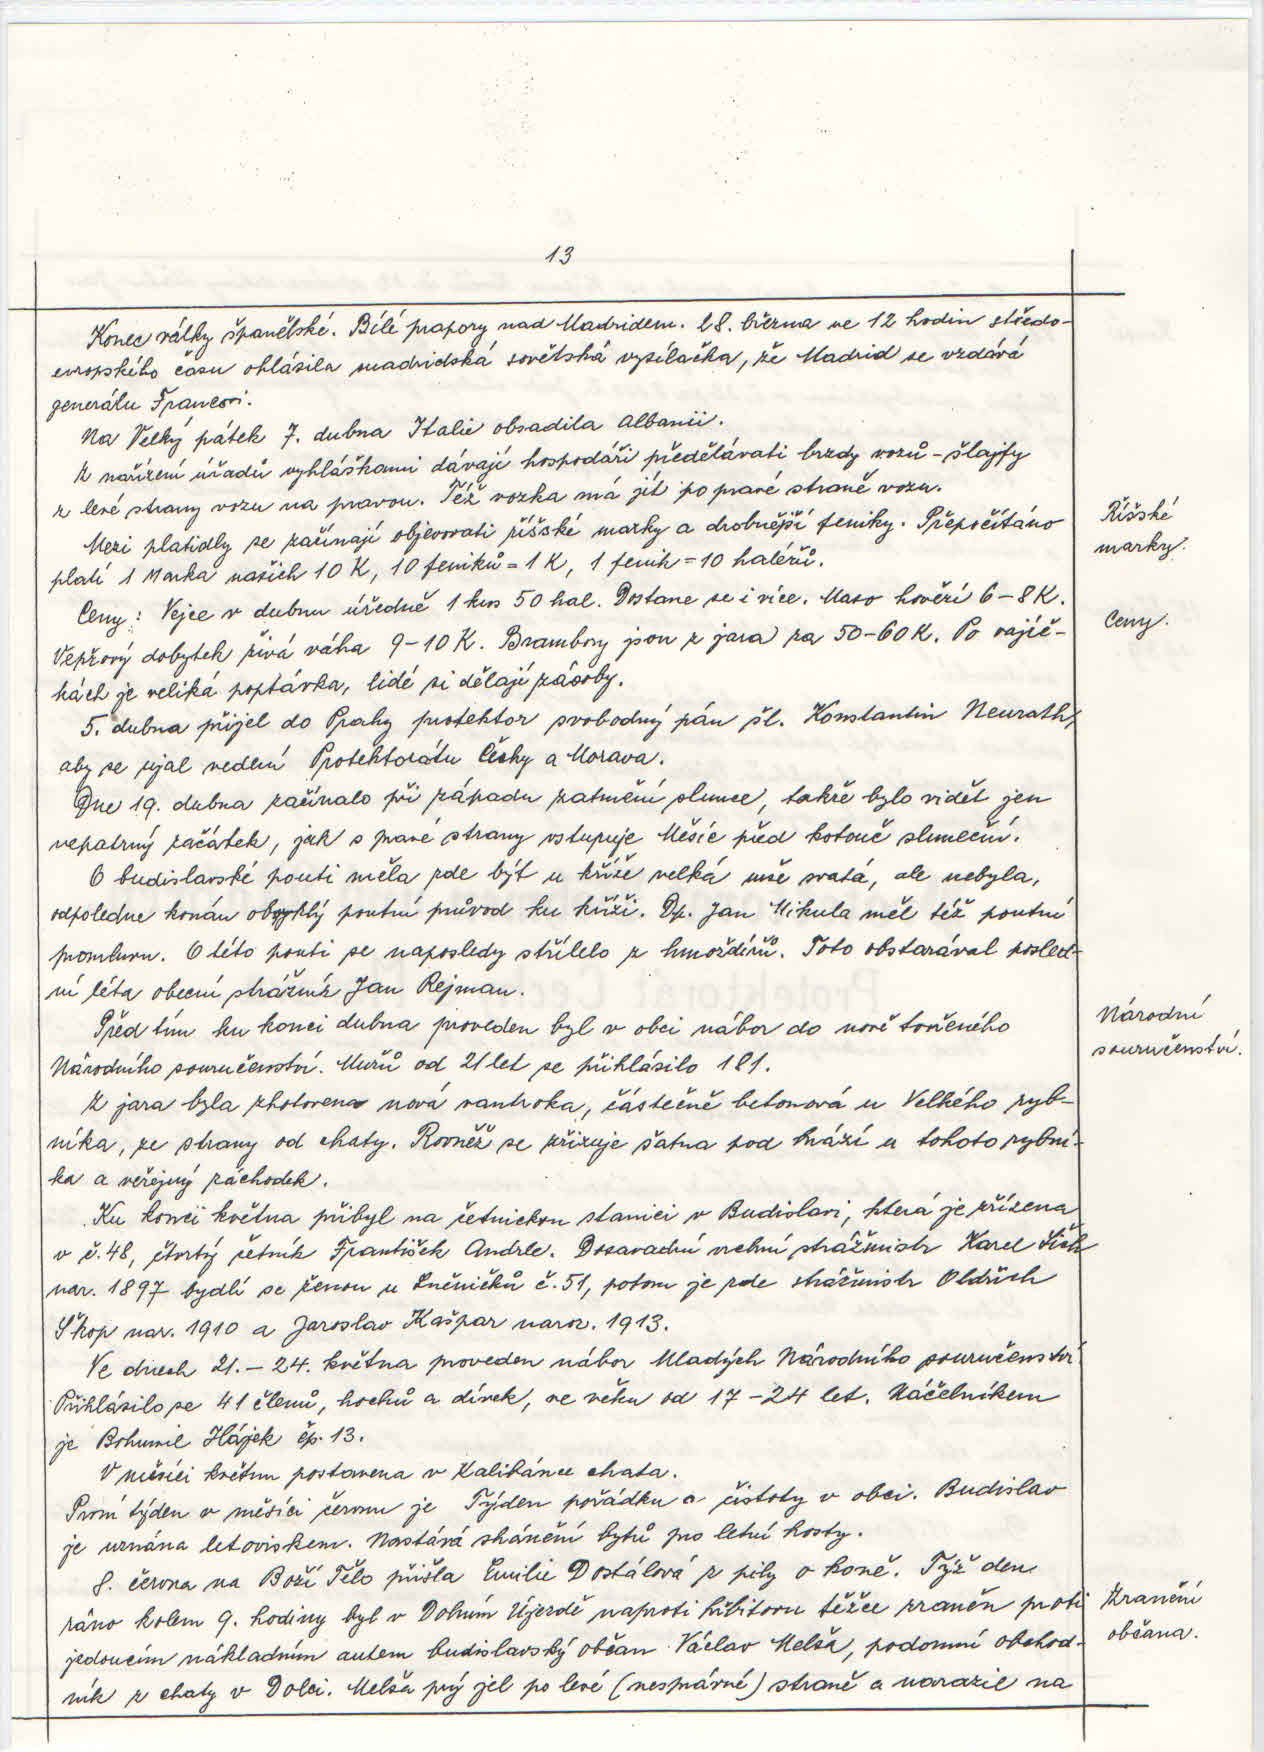 13
Konec války španělské. Bílé prapory nad Madridem. 28. března ve 12 hodin středo-
evropského času ohlásila madridská sovětská vysílačka, že Madrid se vzdává
generálu Francovi.
Na Velký pátek 7. dubna Italie obsadila Albanii.
Z nařízení úřadů vyhláškami dávají hospodáři předělávati brzdy vozů - šlajfy
z levé strany vozu na pravou. Též vozka má jít po pravé straně vozu.
Mezi platidly se začínají objevovati říšské marky a drobnější feniky. Přepočítáno
platí 1 Marka našich 10 K, 10 feniků = 1 K, 1 fenik = 10 haléřů.
Říšské
marky.
Ceny: Vejce v dubnu úředně 1 kus 50 hal. Dostane se i více. Maso hovězí 6-8 K.
Vepřový dobytek živá váha 9-10 K. Brambory jsou z jara za 50-60 K. Po vajíč-
kách je veliká poptávka, lidé si dělají zásoby.
Ceny.
5. dubna přijel do Prahy protektor svobodný pán šl. Konstantin Neurath,
aby se ujal vedení Protektorátu Čechy a Morava.
Dne 19. dubna začínalo při západu zatmění slunce, takže bylo vidět jen
nepatrný začátek, jak s pravé strany vstupuje Měsíc před kotouč sluneční.
O budislavské pouti měla zde být u kříže velká mše svatá, ale nebyla,
odpoledne konán obvyklý poutní průvod ku kříži. Dp. Jan Mikula měl též poutní
promluvu. O této pouti se naposledy střílelo z hmoždířů. Toto obstarával posled-
ní léta obecní strážník Jan Rejman.
Před tím ku konci dubna proveden byl v obci nábor do nově tvořeného
Národního souručenství. Mužů od 21 let se přihlásilo 181.
Národní
souručenství.
Z jara byla zhotovena nová vantroka, částečně betonová u Velkého ryb-
níka, ze strany od chaty. Rovněž se zřizuje šatna pod hrází u tohoto rybní-
ka a veřejný záchodek.
Ku konci května přibyl na četnickou stanici v Budislavi, která je zřízena
v č. 48, čtvrtý četník František Andrle. Dosavadní vrchní strážmistr Karel
nar. 1897 bydlí se ženou u Sněníčků č. 51, potom je zde strážmistr Oldřich
Škop nar. 1910 a Jaroslav Kašpar naroz. 1913.
Ve dnech 21. - 24. května proveden nábor Mladých Národního souručenství.
Přihlásilo se 41 členů, hochů a dívek, ve věku od 17-24 let. Náčelníkem
je Bohumil Hájek čp. 13.
V měsíci květnu postavena v Kalibánce chata.
První týden v měsíci červnu je Týden pořádku a čistoty v obci. Budislav
je uznána letoviskem. Nastává shánění bytů pro letní hosty.
8. června na Boží Tělo přišla Emilie Dostálová z pily o koně. Týž den
ráno kolem 9. hodiny byl v Dolním Újezdě naproti hřbitovu těžce zraněn proti
jedoucím nákladním autem budislavský občan Václav Melša, podomní obchod-
ník z chaty v Dolci. Melša prý jel po levé (nesprávné) straně a narazil na
Zranění
občana.